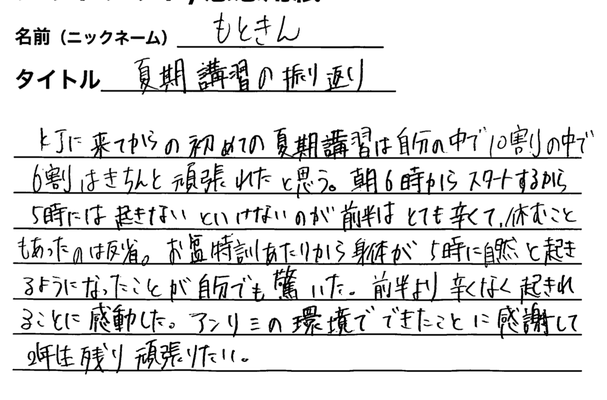 名前（ニックネーム） もときん
タイトル 夏期講習の振り返り
KJに来てからの初めての夏期講習は自分の中で10割の中で
6割はきちんと頑張れたと思う。朝6時からスタートするから
5時には起きないといけないのが前半はとても辛くて、休むこと
もあったのは反省。お盆特訓あたりから身体が5時に自然と起き
るようになったことが自分でも驚いた。前半より辛くなく起きれ
ることに感動した。アンリミの環境でできたことに感謝して
2年生残り頑張りたい。